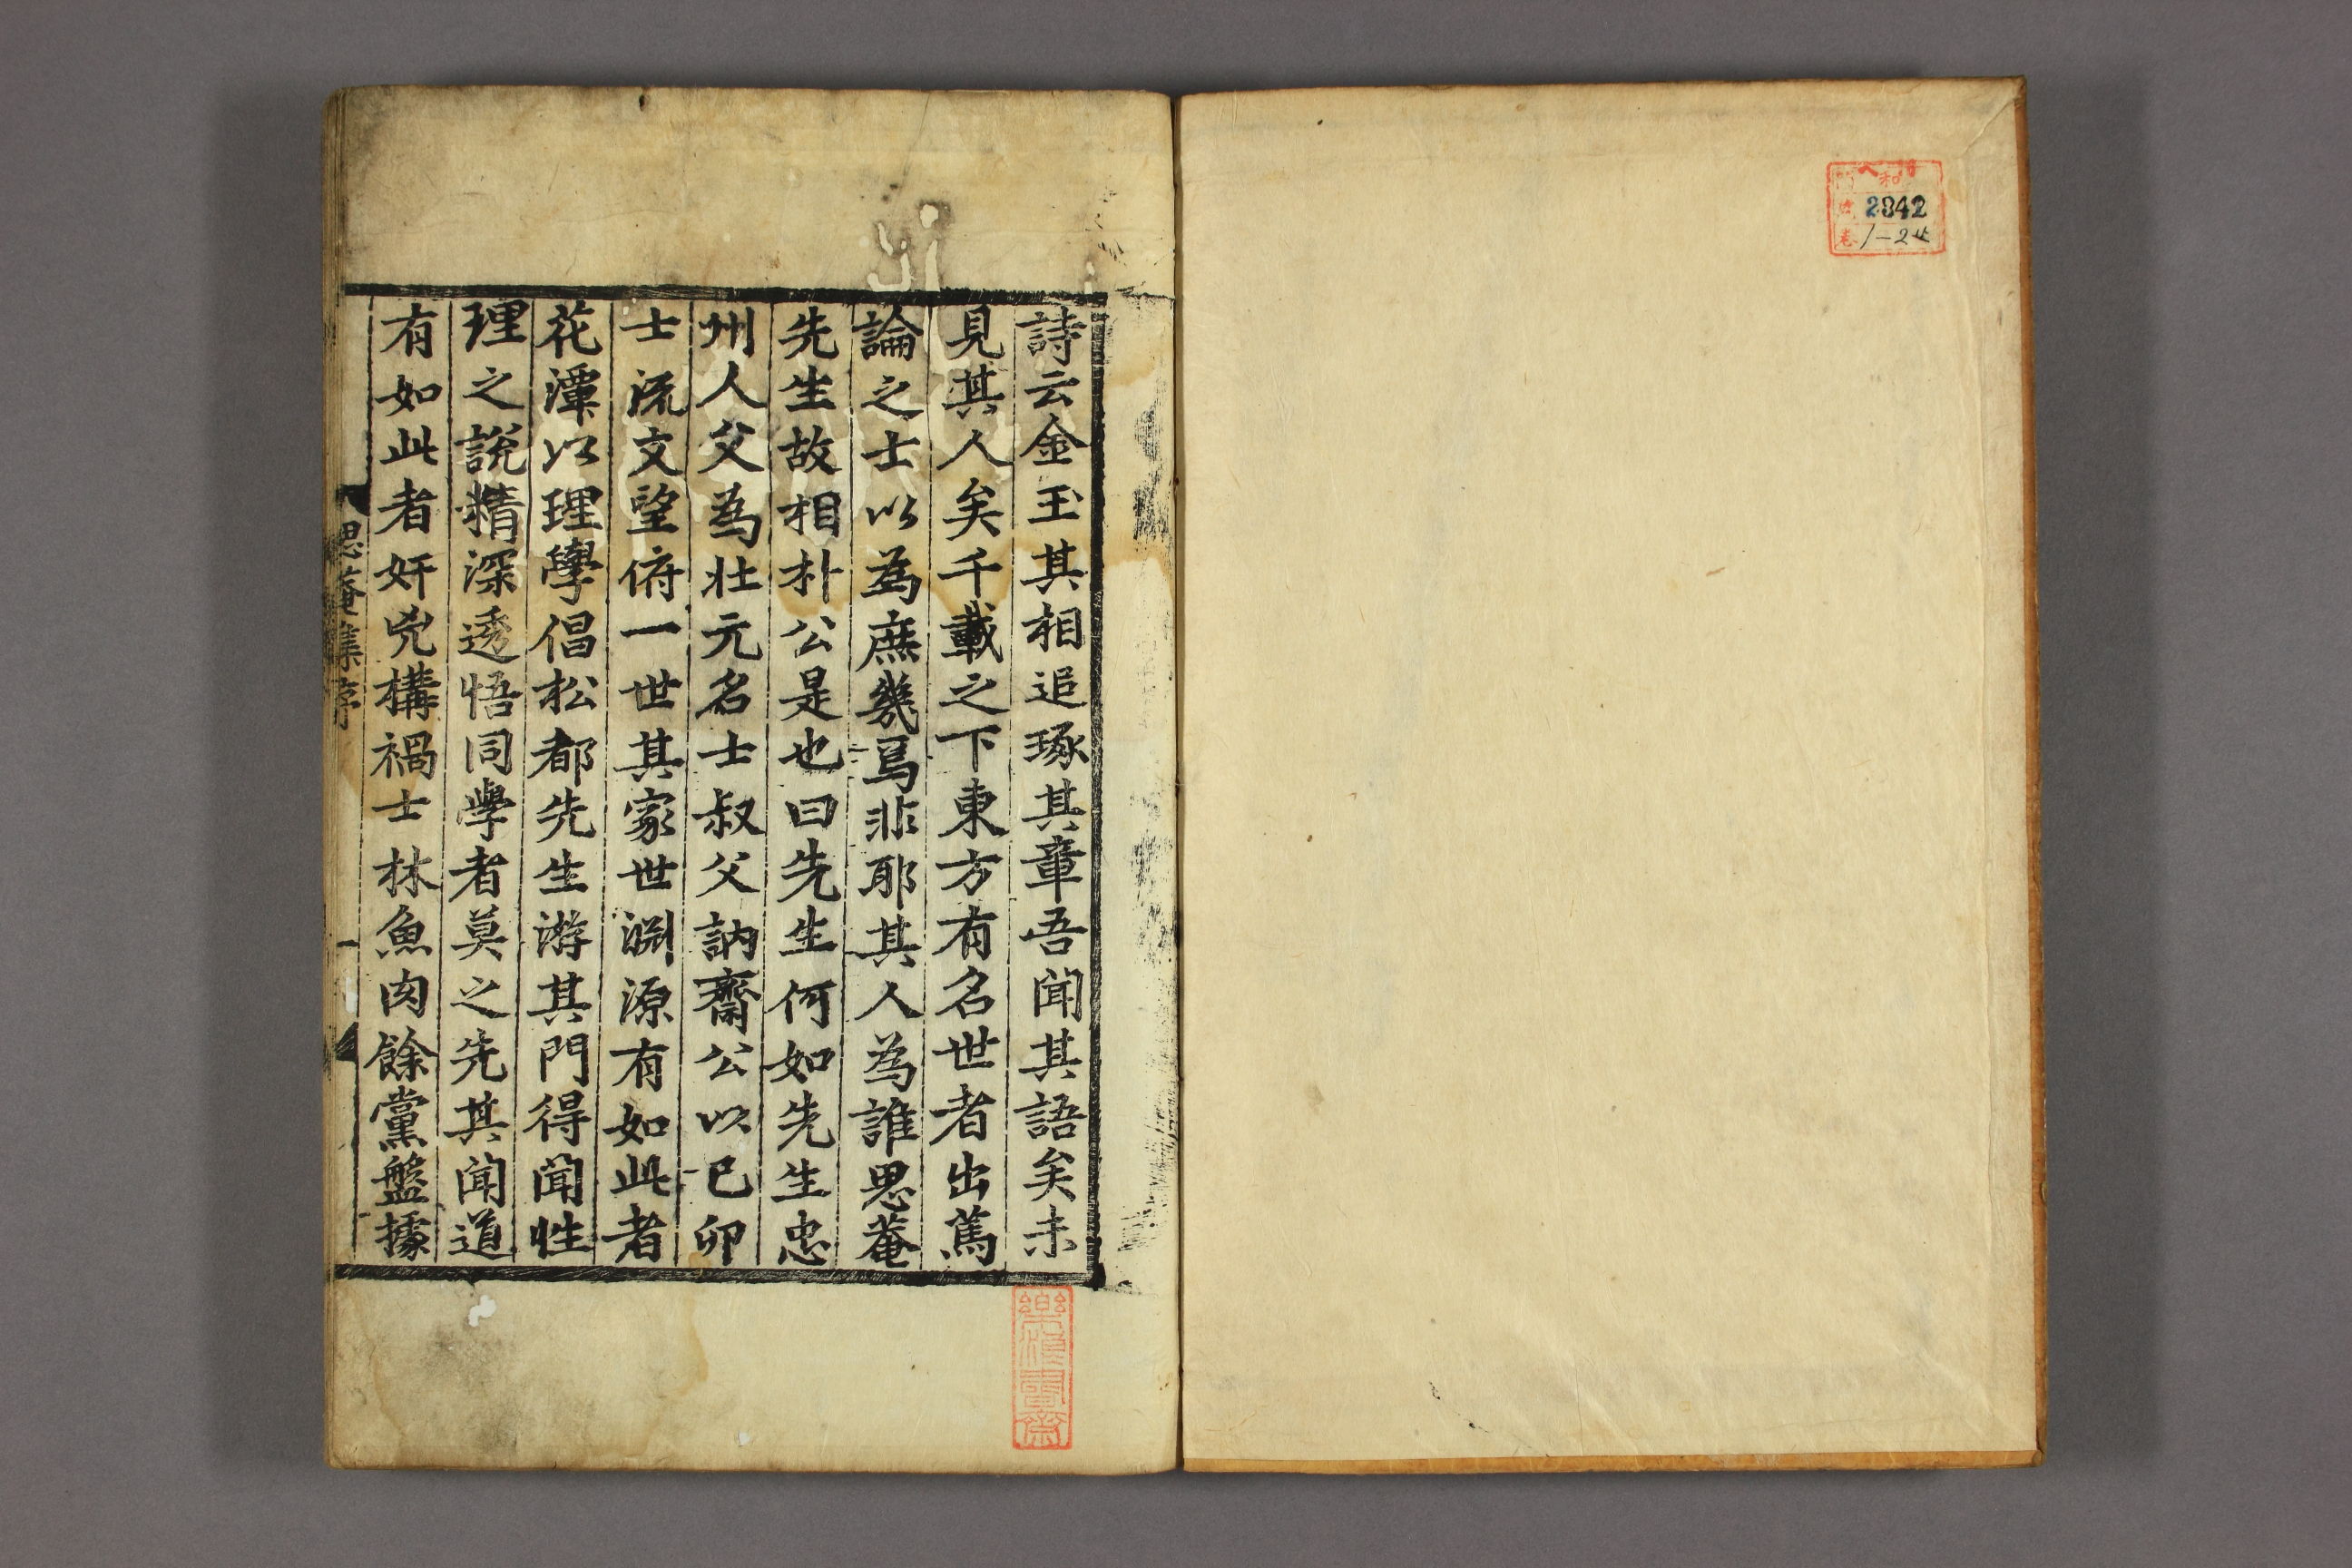 和
2842
卷 1-2止
詩云金玉其相追琢其章吾聞其語矣未
見其人矣千載之下東方有名世者出篤
論之士以為庶幾焉非耶其人為誰思菴
先生故相朴公是也曰先生何如先生忠
州人父為壯元名士叔父訥齋公以已卯
士流文望俯一世其家世淵源有如此者
花潭以理學倡松都先生游其門得聞性
理之說精深透悟同學者莫之先其聞道
有如此者奸兇構禍士林魚肉餘黨盤據
思菴集序
一